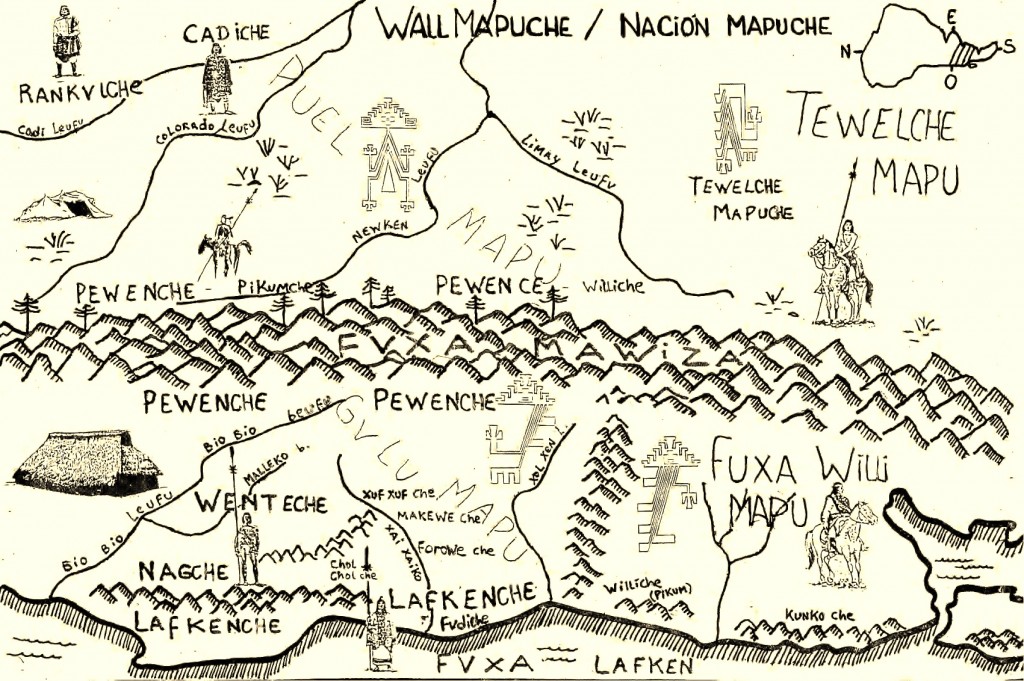 WALL MAPUCHE / NACIÓN MAPUCHE
E
N
S
O
RANKVLCHE
CADICHE
Cadi Leufu
COLORADO Leufu
PUEL
MAPU
LEUFU
NEWKEN
LIMAY LEUFU
TEWELCHE
MAPUCHE
TEWELCHE
MAPU
PEWENCHE
PiKumche
PEWENCE
Williche
FVXA MAWiZA
PEWENCHE
PEWENCHE
BIO BIO
LEUFU
BIO BIO
MALLEKO b.
GVLU MAPU
WENTECHE
XUF XUF Che
MAKEWE Che
FOROWE che
XAI XAIKO
CHOL
CHOL che
NAGCHE
LAFKENCHE
LAFKENCHE
Fvdiche
XOL XEN
FUXA Willi
MAPU
Williche
(PIKUM)
KUNKO che
FVXA LAFKEN